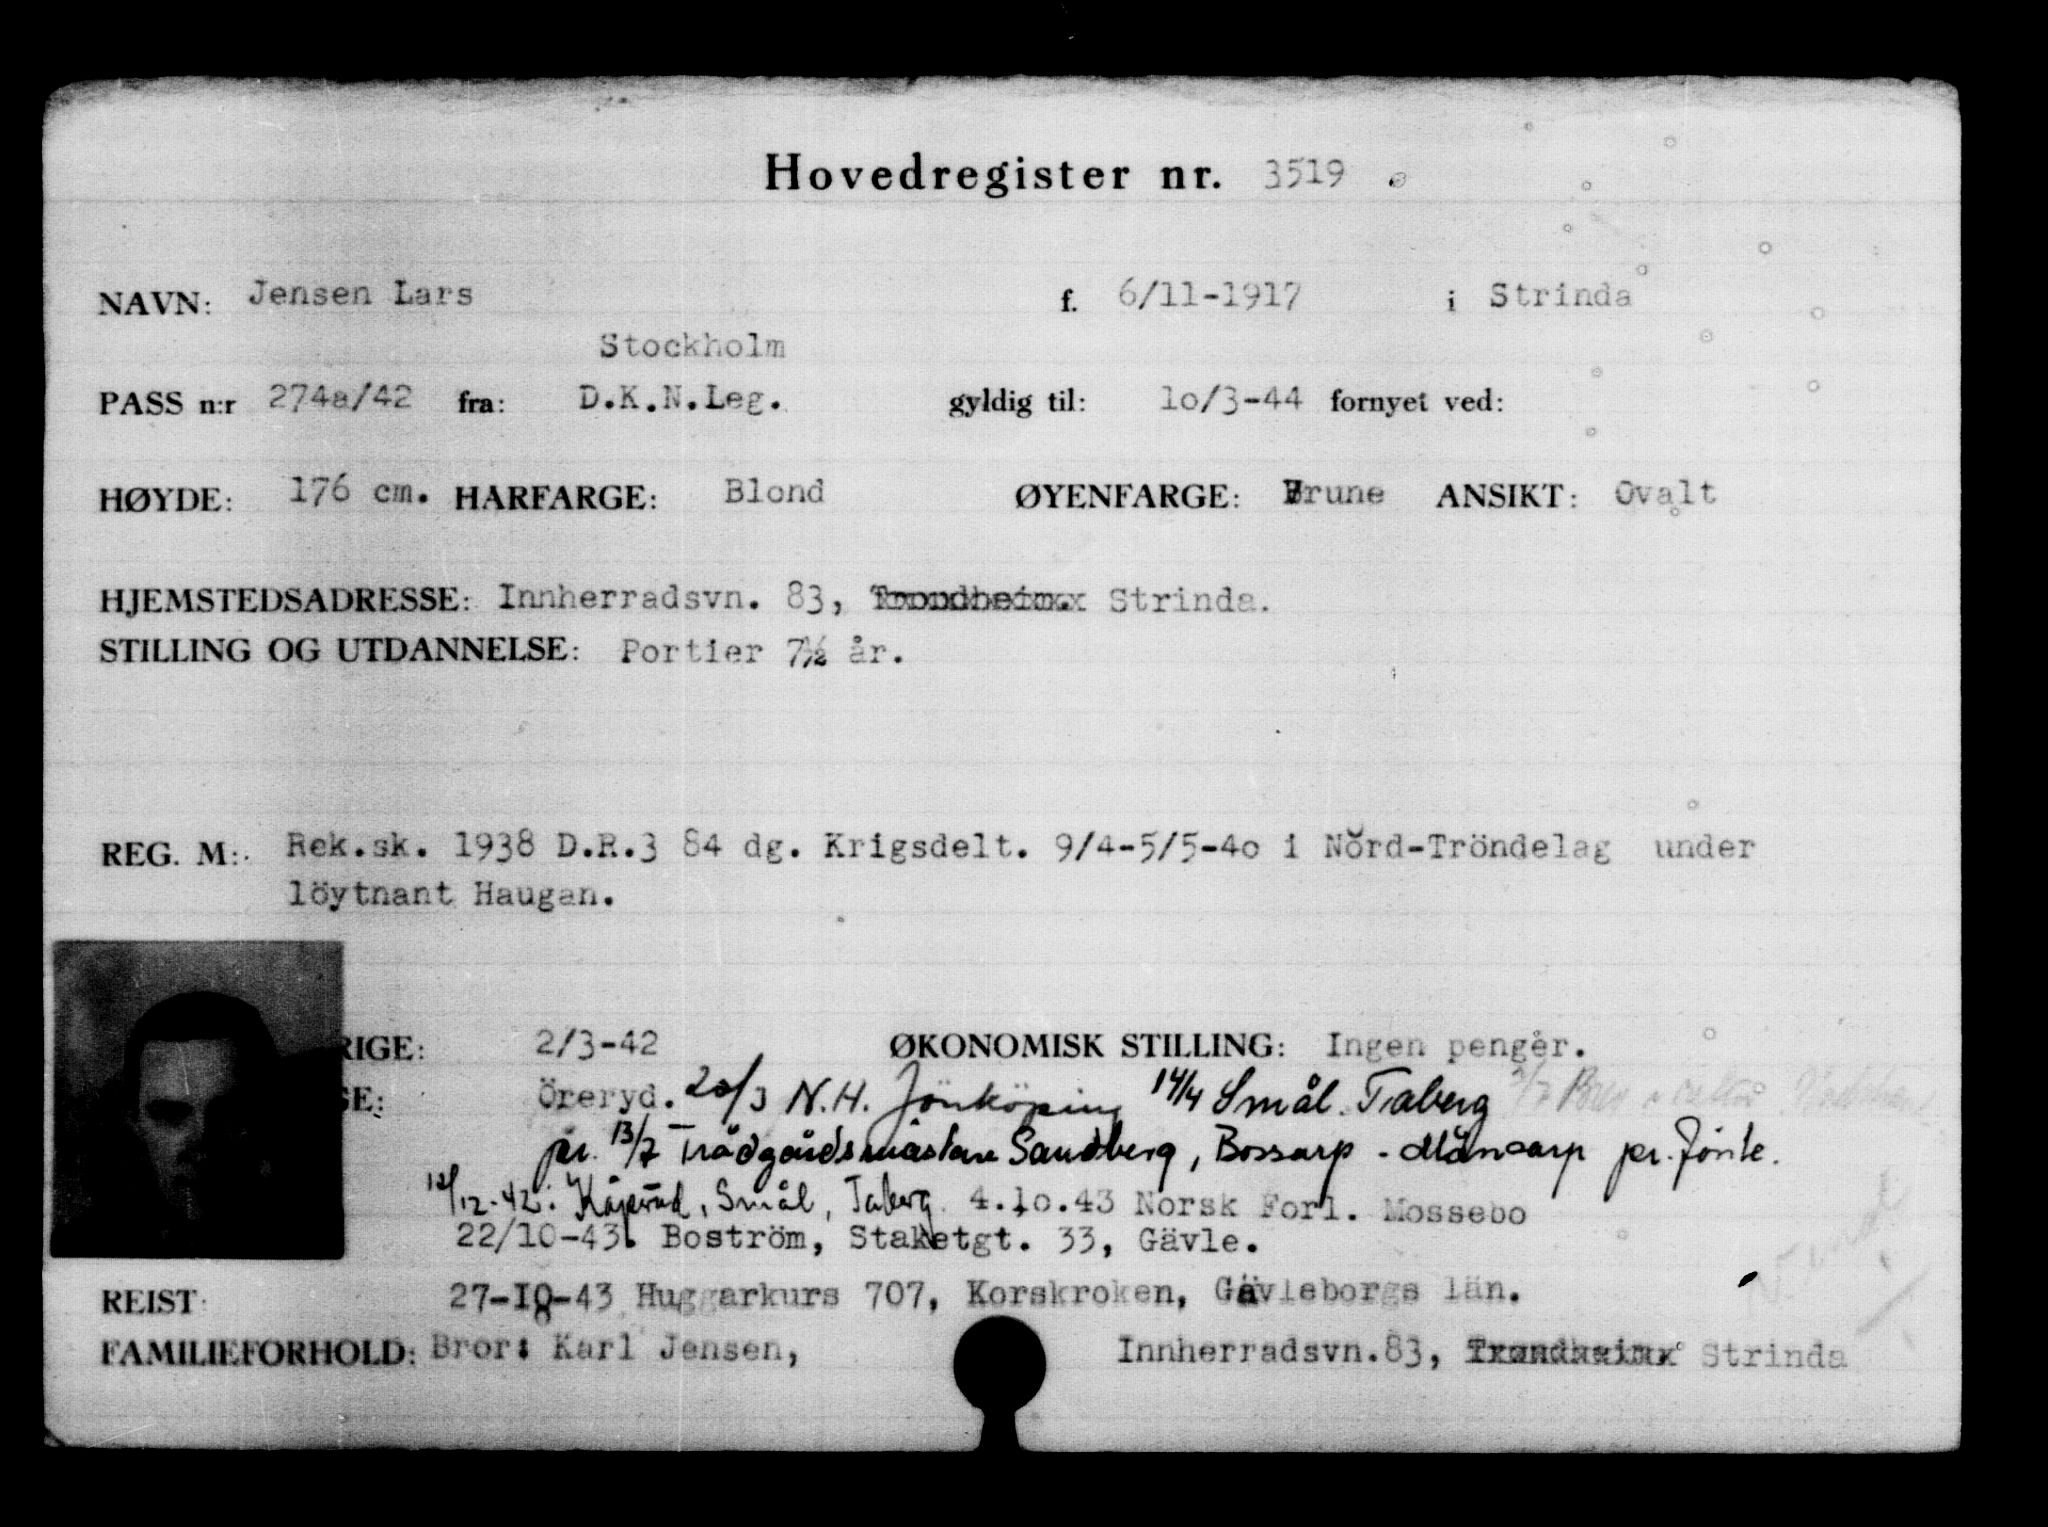 Hovedregister nr. 3519
NAVN: Jensen Lars f. 6/11-1917 i Strinda
Stockholm
PASS n:r 274a/42 fra: D.K.N.Leg. gyldig til: 1o/3-44 fornyet ved:
HØYDE: 176 cm. HARFARGE: Blond ØYENFARGE: Brune ANSIKT: Ovalt
HJEMSTEDSADRESSE: Innherradsvn. 83, Trondheim. Strinda.
STILLING OG UTDANNELSE: Portier 7½ år.
REG. M: Rek.sk. 1938 D.R.3 84 dg. Krigsdelt. 9/4-5/5-4o i Nord-Tröndelag under
löytnant Haugan.
RIGE: 2/3-42 ØKONOMISK STILLING: Ingen penger.
GE: Öreryd. 20/3 N.H. Jönköping 14/4 Smål. Taberg
pr. 13/7 Trädgårdsmästare Sandberg, Bossarp - Månsarp pr. Jönk.
12-42: SmåI, Taberg. 4.1o.43 Norsk Forl. Mossebo
22/10-43. Boström, Staketgt. 33, Gävle.
27-10-43 Huggarkurs 707, Korskroken, Gävleborgs län.
REIST:
FAMILIEFORHOLD: Bror: Karl Jensen, Innherradsvn.83, Trondheim. Strinda